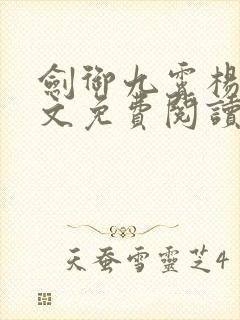 劍御九霄楊
文免費閱讀
天蚕雪靈芝4